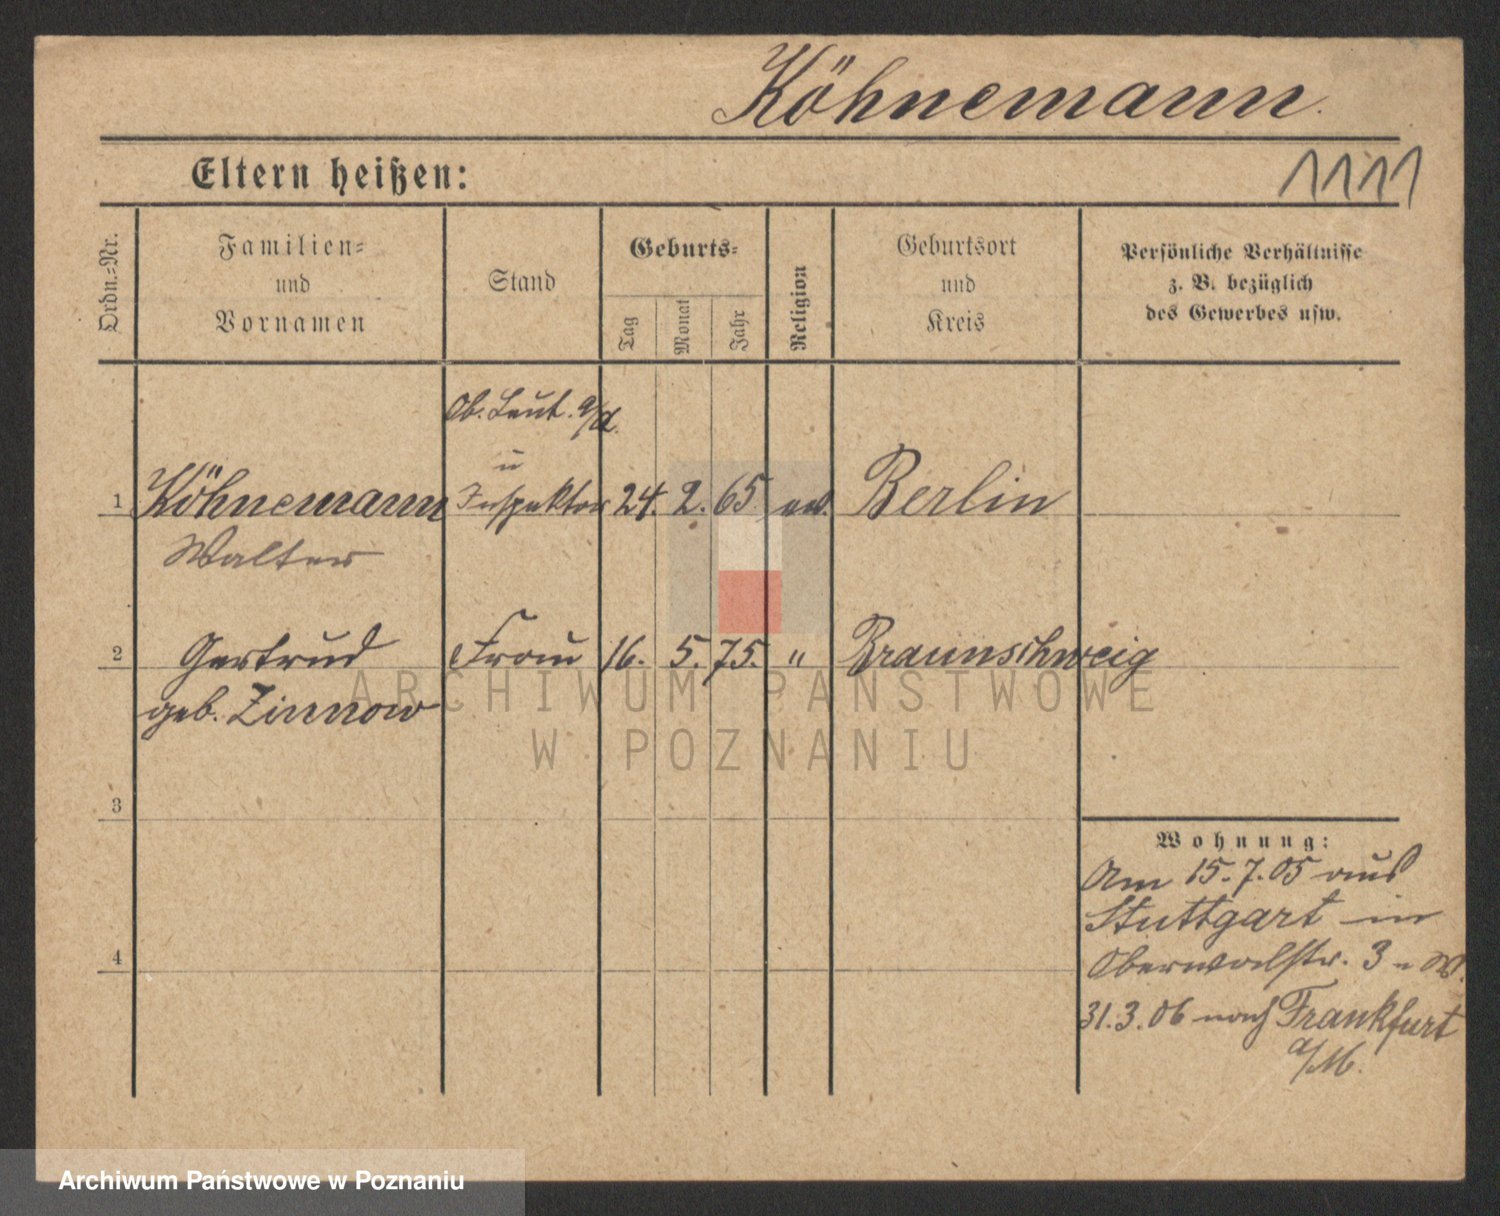 Köhnemann.
Eltern heißen:
1111
Ordn.-Nr.
Familien-
und
Vornamen
Stand
Geburts-
Tag
Monat
Jahr
Religion
Geburtsort
und
Kreis
Persönliche Verhältnisse
z. B. bezüglich
des Gewerbes usw.
Ob. Leut. a/d.
u
1 Köhnemann Inspektor 24. 2. 65 ev. Berlin
Walter
2 Gertrud Frau 16. 5. 75. " Braunschweig
geb. Zinnow
3
Wohnung:
Am 15.7.05 aus
Stuttgart in
Oberwalstr. 3
4
31.3.06 nach Frankfurt
a/M.
ARCHIWUM PAŃSTWOWE
W POZNANIU
Archiwum Państwowe w Poznaniu